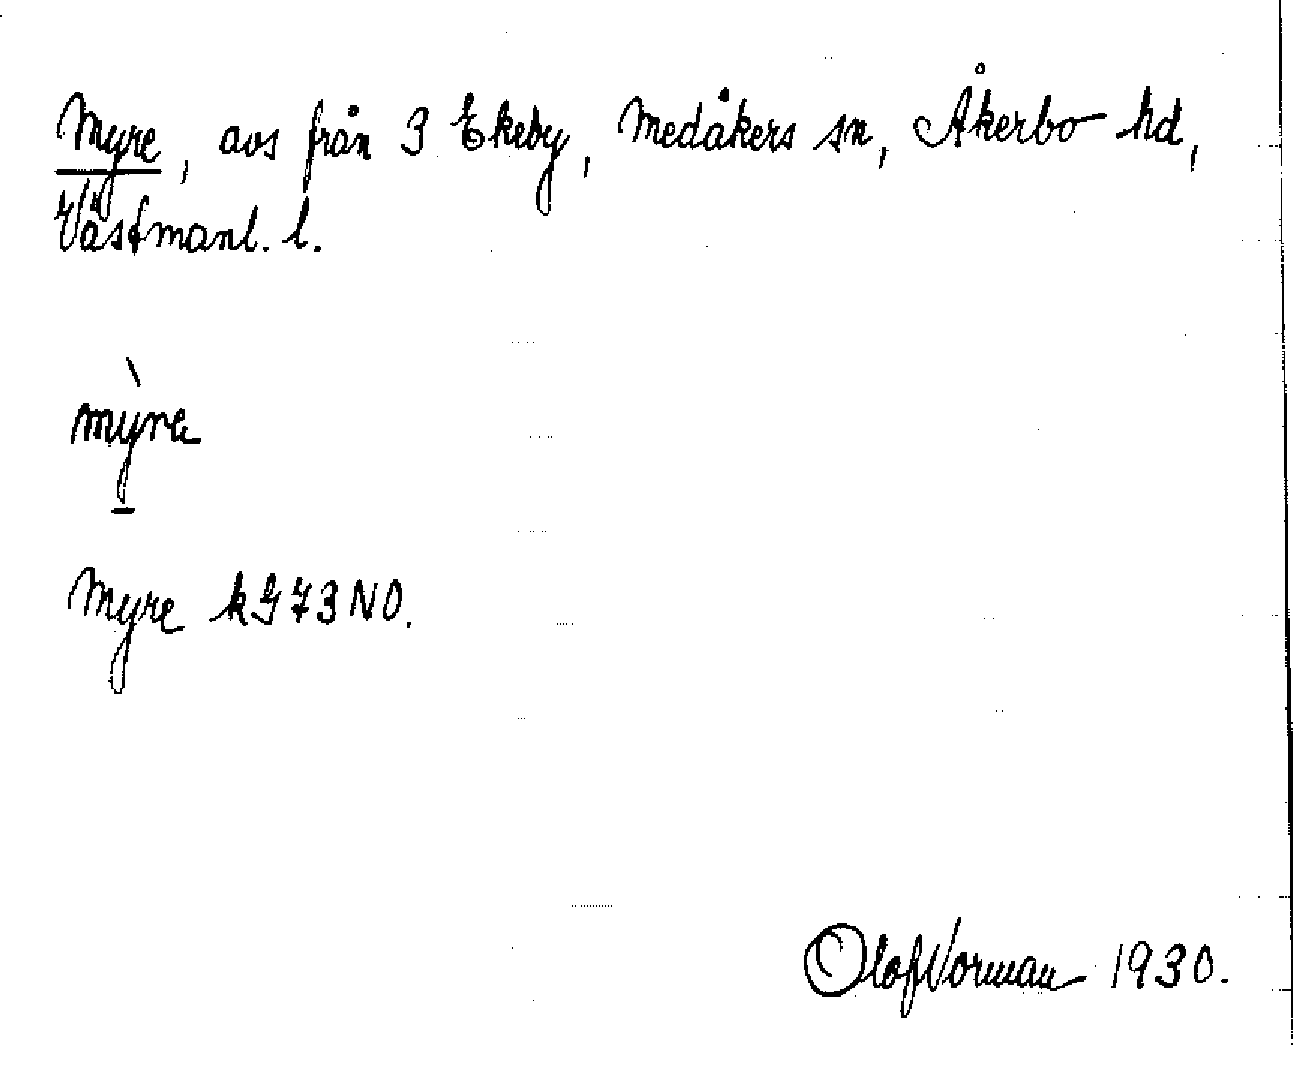 Myre, avs från 3 Ekeby, Medåkers sn, Åkerbo hd,
Västmanl. l.
mỳra
Myre kG73NO.
Olof Vorman 1930.